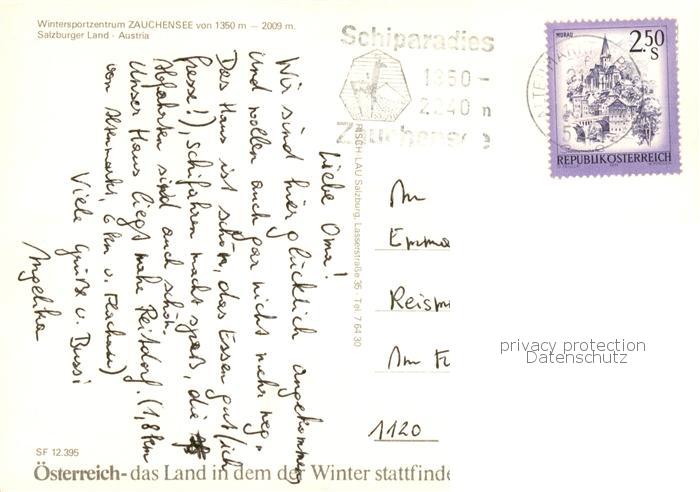 Wintersportzentrum ZAUCHENSEE von 1350 m — 2009 m.
Salzburger Land · Austria
Schiparadies
1350 –
2240 m
Zauchensee
MURAU
2.50
S
REPUBLIK ÖSTERREICH
Liebe Oma!
Wir sind hier glücklich angekommen
und wollen auch gar nicht mehr weg.
Das Haus ist schön, das Essen gut (ich
fresse!), Schifahren macht spaß, die
Abfahrten sind auch schön.
Unser Haus liegt nahe Reitdorf. (1,8 km
von Altenmarkt, 6 km v. Flachau)
Viele Grüße u. Bussi
Angelika
RISCH LAU Salzburg, Lasserstraße 35 Tel. 7 64 30
An
Emma
Reism
Am
1120
privacy protection
Datenschutz
SF 12.395
Österreich- das Land in dem der Winter stattfinde